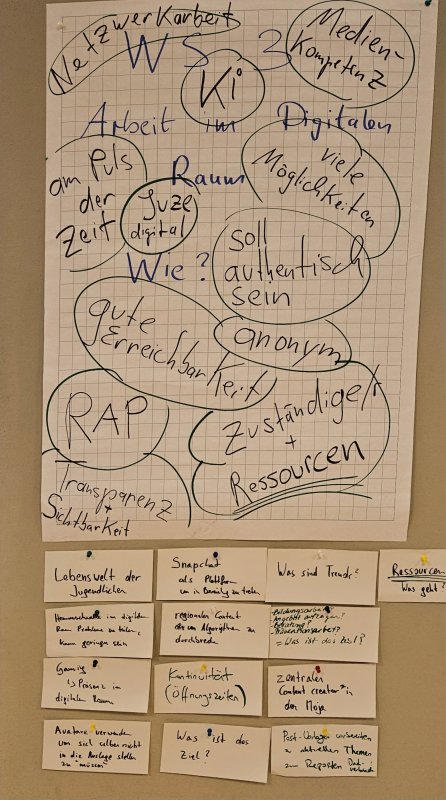 Netzwerkarbeit
WS 3
Medien-
Kompetenz
Ki
Arbeit im Digitalen
Raum
am Puls
der
Zeit
Juze
digital
viele
Möglichkeiten
Wie?
soll
authentisch
sein
gute
Erreichbarkeit
anonym
RAP
Zuständige/r
+
Ressourcen
Transparenz
+
Sichtbarkeit
Lebenswelt der
Jugendlichen
Snapchat
als Plattform
um in Beziehung zu treten
Was sind Trends?
Ressourcen
Was geht?
Hemmschwelle im digitalen
Raum Probleme zu teilen,
kann geringer sein
regionalen Content
um Algorithmus zu
durchbrechen
= Was ist das Ziel?
Gaming
↳ Präsenz im
digitalen Raum
Kontinuität
(Öffnungszeiten)
zentralen
Content creator*in
den Moja
Avatare verwenden
um sich selber nicht
in die Auslage stellen
zu "müssen"
Was ist das
Ziel?
Post-Vorlagen
aktuellen Themen
zum Reposten